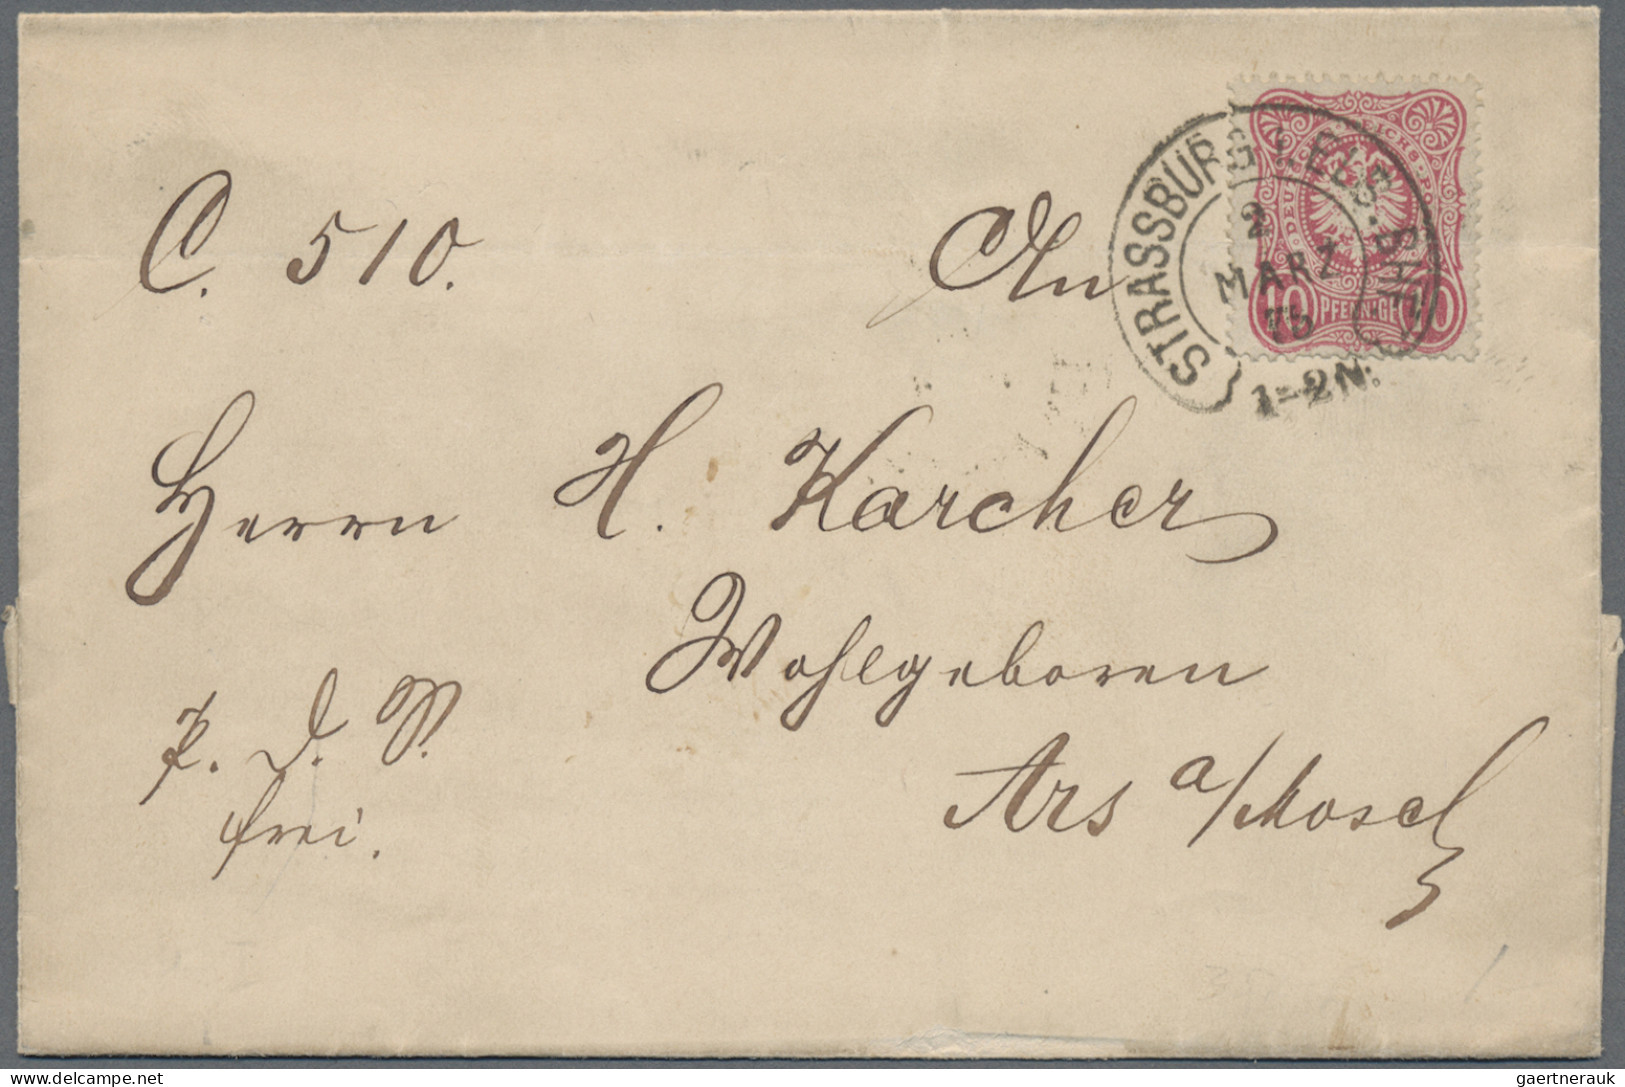 C. 510. An
Herrn H. Karcher
Wohlgeboren
p. d. P.
frei.
Ars a/Mosel
STRASSBURG I. ELS.-BHF.
2
MARZ
75
1-2N.
DEUTSCHE REICHS-POST
10 PFENNIGE 10
delcampe.net
gaertnerauk